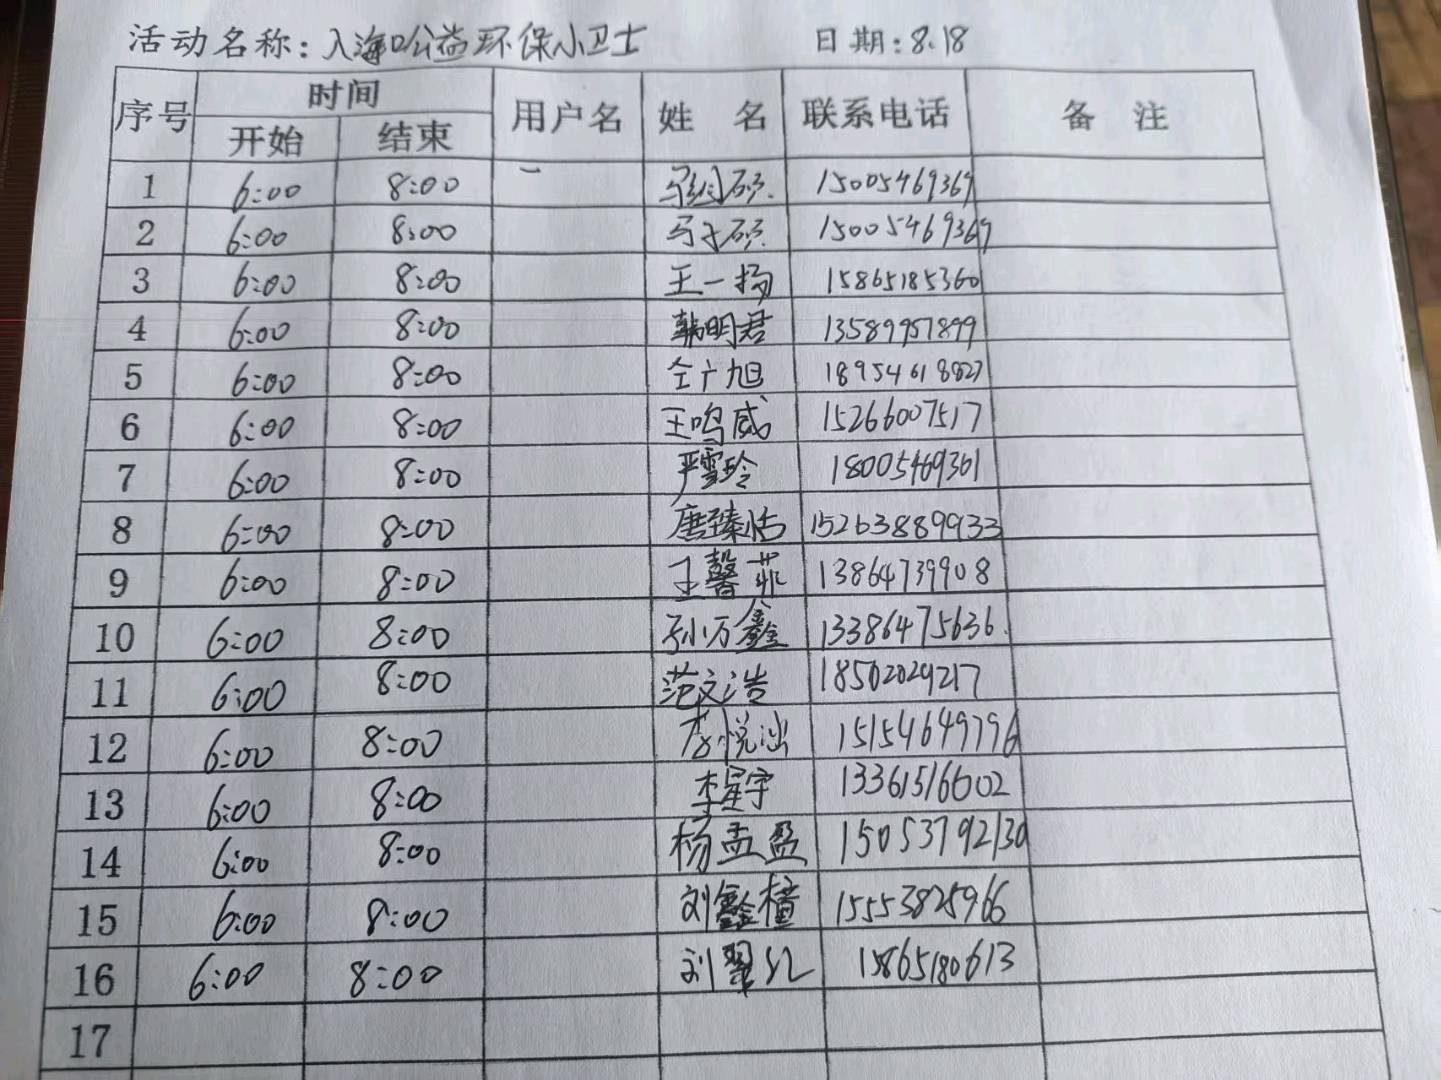 活动名称：入海口公益环保小卫士 日期：8.18
序号 时间 用户名 姓 名 联系电话 备 注
开始 结束
1 6:00 8:00 一 15005469369
2 6:00 8:00 马子硕 15005469369
3 6:00 8:00 王一扬 15865185360
4 6:00 8:00 韩明君 13589951899
5 6:00 8:00 仝广旭 18954618827
6 6:00 8:00 王鸣威 15266007517
7 6:00 8:00 严雪玲 18005469361
8 6:00 8:00 唐臻恬 15263889933
9 6:00 8:00 王馨菲 13864739908
10 6:00 8:00 孙万鑫 13386475636
11 6:00 8:00 范文浩 18502029217
12 6:00 8:00 15154649796
13 6:00 8:00 李星宇 13361516002
14 6:00 8:00 杨孟盈 15053792130
15 6:00 8:00 刘鑫橦 15553825966
16 6:00 8:00 15865180613
17